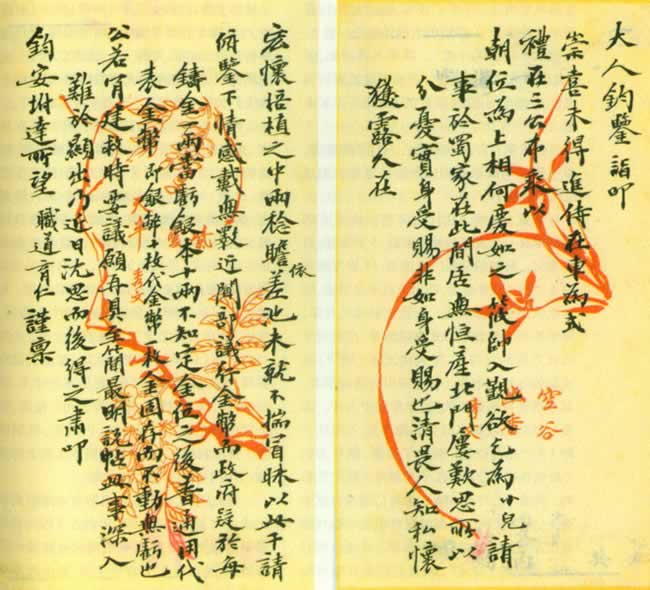 大人鈞鑒詣叩
崇喜未得進侍在東為式
禮在三公布乘以
朝位為上相何慶如之 帥入覲欲乞為小兒請
事於蜀家在此間居無恒產北門屢歎思所以
分憂實身受賜非如身受賜也清畏人知私懷
獲露久在
宏懷培植之中兩
依
瞻差池未就不揣冒昧以此干請
俯鑒下情感戴無數近聞部議行金幣而政府疑於每
鑄金一兩當虧銀本十兩不知定金位之後普通用代
表金幣即銀幣十枚代金幣一枚金固存而不動無虧也
公若肯建救時要議願再具至簡最明說帖此事深入
難於顯出乃近日沈思而後得之肅叩
鈞安坿達所望 職道育仁謹稟
空谷